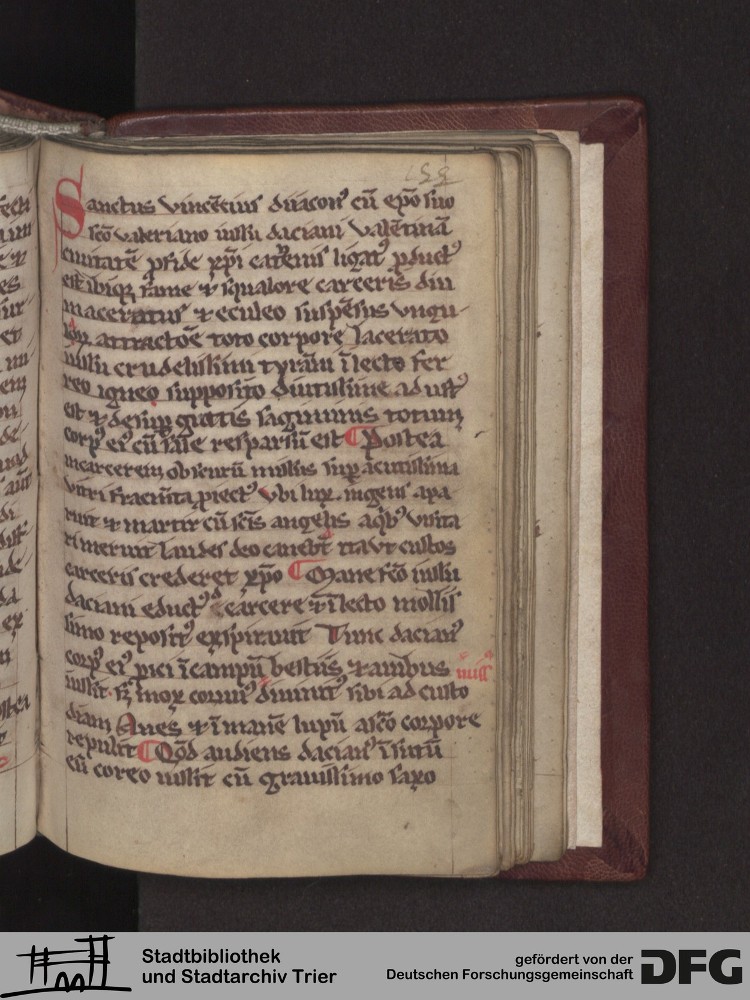 Sanctus vincētius diiaconꝰ cū ep̄o suo
sc̄o valeriano iussu daciani valētinā
ciuitatē ꝓ fide xp̄i cathenis ligatꝰ ꝑductꝰ
est ibiqꝫ fame ⁊ squalore carceris diu
maceratus ⁊ eculeo suspēsus vngu
toto corpore lacerato
iussu crudelissimi tyrāni ī lecto fer
reo igneo supposito diutissime adustꝰ
est ⁊ desuꝑ guttis sagiminis totum
corpꝰ eiꝰ cū sale resparsū est ¶ Postea
in carcerem obscurū missus suꝑ acutissima
vitri fracmēta ꝓiectꝰ vbi lux ingens apa
ruit ⁊ martir cū sc̄is angelis a qͥbꝰ visita
ri meruit laudes deo canebāt ita vt custos
carceris crederet xp̄o ¶ Mane fc̄o iussu
daciani eductꝰ a carcere ⁊ ī lecto mollis
simo repositꝰ expirauit Tunc dacianꝰ
corpꝰ eiꝰ ꝓici ī campū bestiis ⁊ auibus
iussit sꝫ mox coruuꝰ diuinitꝰ sibi ad custo
diam Aues ⁊ īmanē lupū a sc̄o corpore
repulit ¶ Qd̄ audiens dacianꝰ īsutū
eū coreo iussit cū grauissimo saxo
Stadtbibliothek
und Stadtarchiv Trier
gefördert von der
Deutschen Forschungsgemeinschaft
DFG